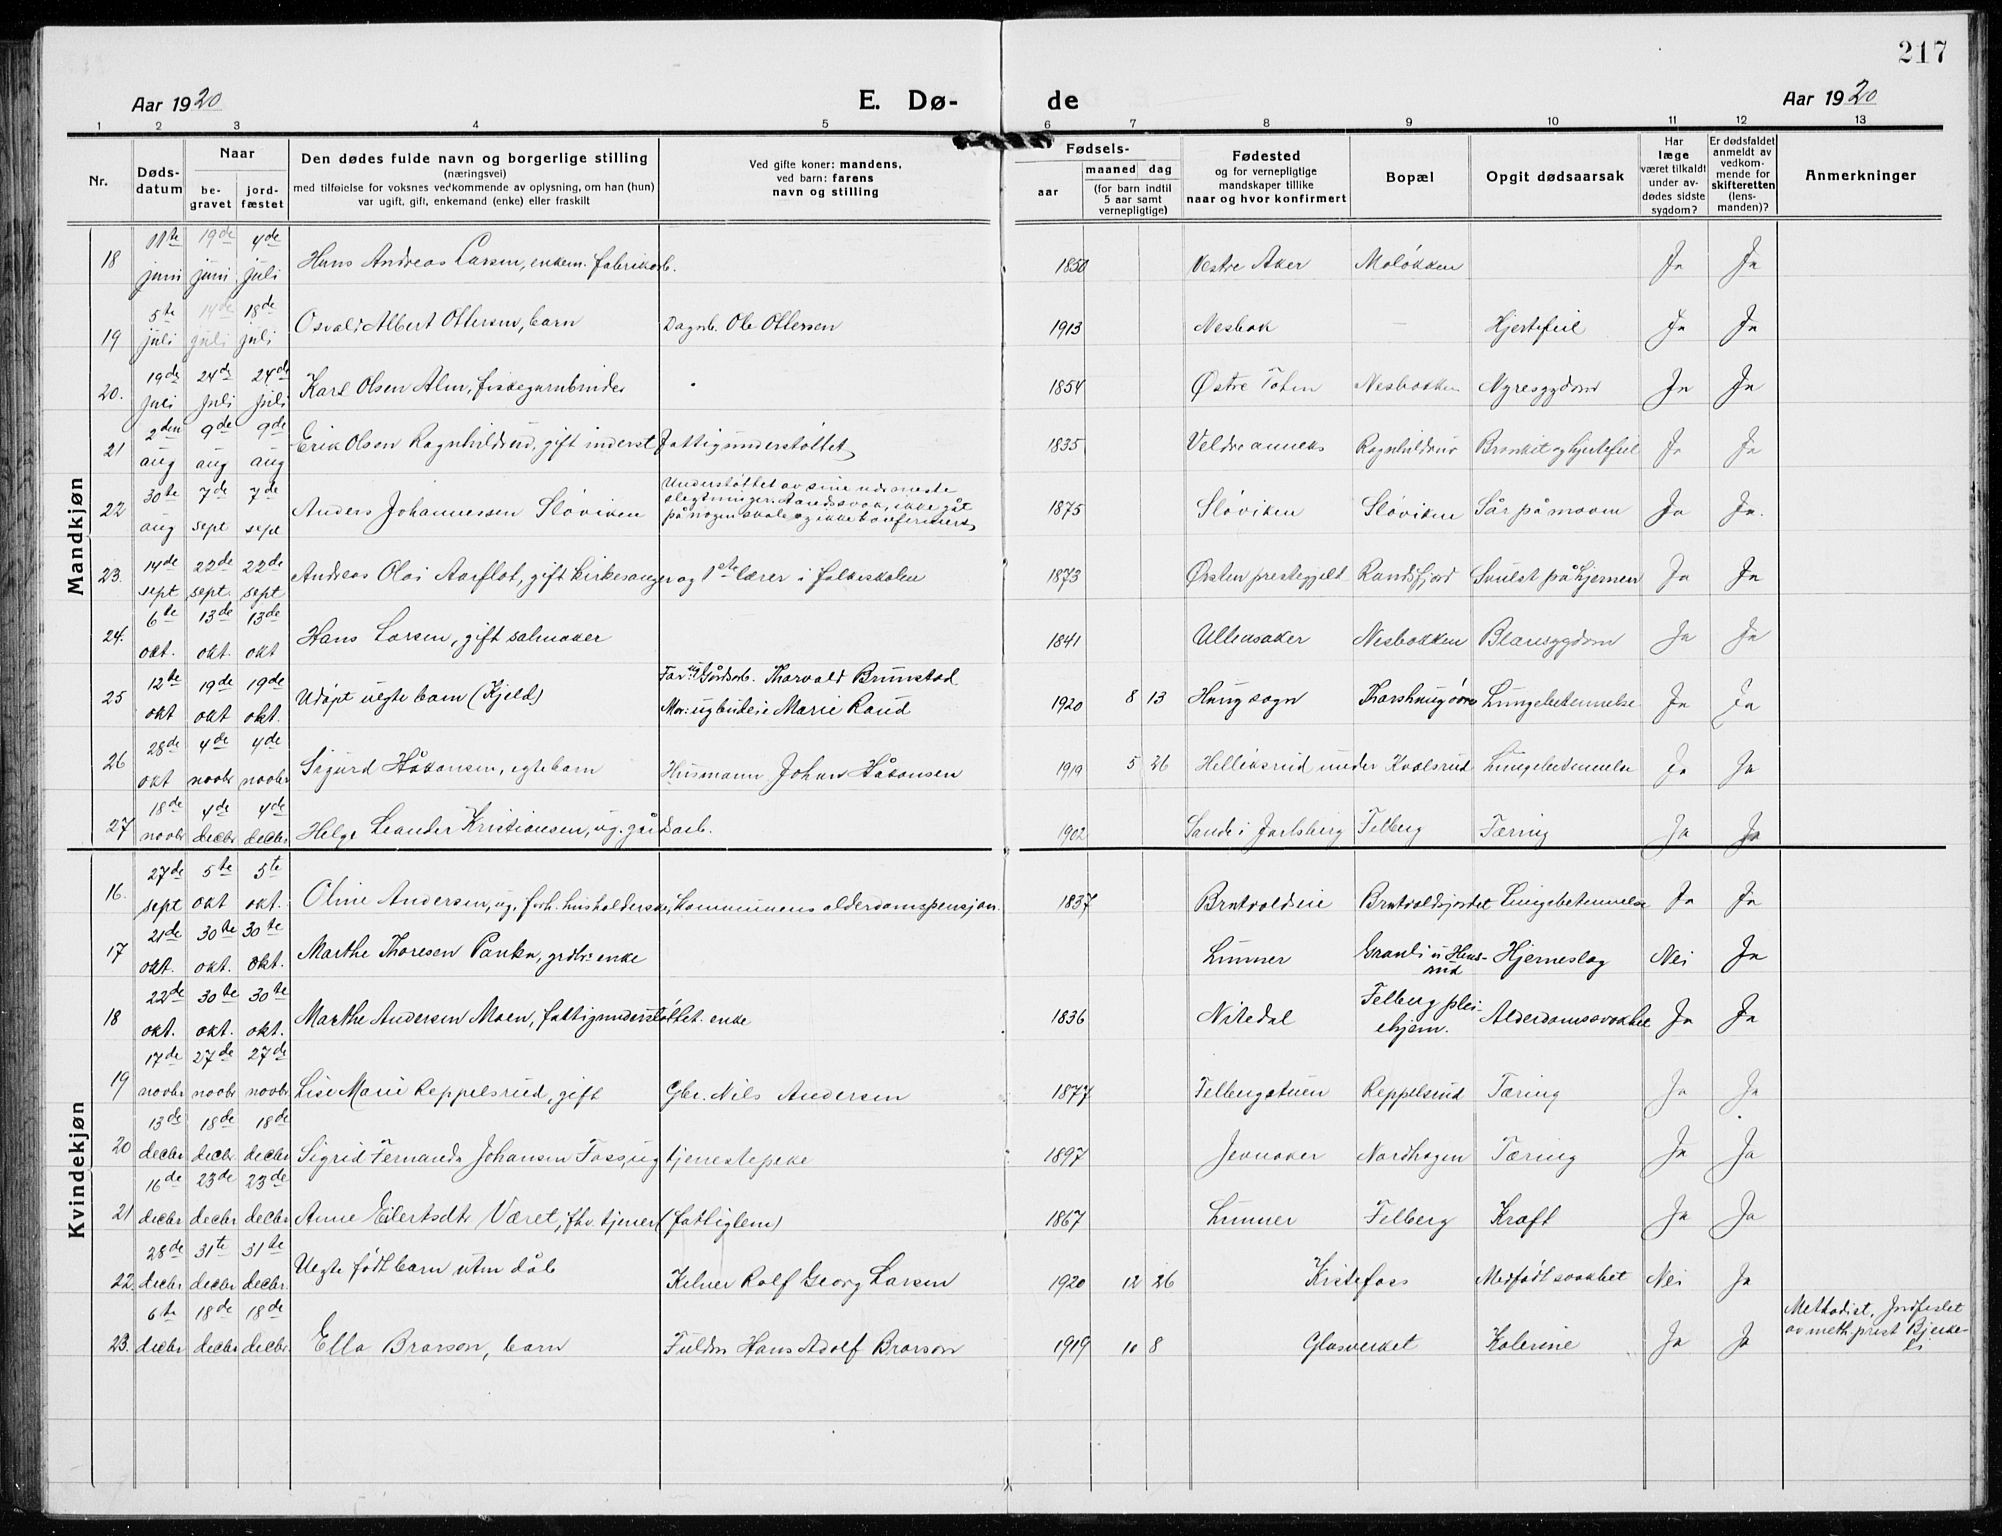 217
Aar 1920 E. Dø- de Aar 1920
1 2 3 4 5 6 7 8 9 10 11 12 13
Nr. Døds-datum Naar be-gravet jord-fæstet Den dødes fulde navn og borgerlige stilling (næringsvei) med tilføielse for voksnes vedkommende av oplysning, om han (hun) var ugift, gift, enkemand (enke) eller fraskilt Ved gifte koner: mandens, ved barn: farens navn og stilling Fødsels- aar maaned dag (for barn indtil 5 aar samt vernepligtige) Fødested og for vernepligtige mandskaper tillike naar og hvor konfirmert Bopæl Opgit dødsaarsak Har læge været tilkaldt under av-dødes sidste sygdom? Er dødsfaldet anmeldt av vedkom-mende for skifteretten (lens-manden)? Anmerkninger
Mandkjøn
18 11te juni 19de juni 4de juli Hans Andreas Larsen, enkem. fabrikarb. 1850 Vestre Aker Moløkken Ja Ja
19 5te juli 14de juli 18de juli Osvald Albert Ottersen, barn Dagarb. Ole Ottersen 1913 Nesbak — Hjertefeil Ja Ja
20. 19de juli 24de juli 24de juli Karl Olsen Alm, fiskegarnbinder 1854 Østre Toten Nesbakken Nyresygdom Ja Ja
21 2den aug 9de aug 9de aug Erik Olsen Ragnhildrud, gift inderst Fattigunderstøttet 1835 Veldre anneks Ragnhildrud Bronkit og hjertefeil Ja Ja
22 30te aug 7de sept 7de sept Anders Johannessen Sløviken Understøttet av sine nærmeste slegtninger. Aandssvak, ikke gåt på nogen skole og ikke konfirmert 1875 Sløviken Sløviken Sår på maven Ja Ja.
23. 14de sept 22de sept. 22de sept Andreas Olai Aarflot, gift kirkesanger og 1ste lærer i folkeskolen 1873 Ørsten prestegjeld Randsfjord Svulst på hjernen Ja Ja
24. 6te okt. 13de okt. 13de okt Hans Larsen, gift salmaker 1841 Ullensaker Nesbakken Blæresygdom Ja Ja
25 12te okt 19de okt 19de okt. Udøpt uegte barn (Kjeld) Far: ug Gårdsarb. Thorvald Brunstad
Mor: ug budeie Marie Raud 1920 8 13 Haug sogn Lungebetennelse Ja Ja
26 28de okt 4de novbr 4de novbr Sigurd Håkansen, egte barn Husmann Johan Håkansen 1919 5 26 Helliksrud under Kvalsrud Lungebetennelse Ja Ja
27 18de novbr 4de decbr 4de decbr. Helge Leander Kristiansen, ug. gårdsarb. 1902 Sande i Jarlsberg Felberg Tæring Ja Ja
Kvindekjøn
16. 27de sept 5te okt 5te okt. Oline Andersen, ug. forh. husholderske, Kommunens alderdomspensjon. 1837 Brntvoldeie Brntvoldsjordet Lungebetennelse Ja Ja
17 21de okt. 30te okt. 30te okt. Marthe Thoresen Panka, grdbr. enke Lunner Granli u Hens-rud Hjerneslag Nei Ja
18 22de okt. 30te okt. 30te okt. Marthe Andersen Moen, fattigunderstøttet. enke 1836 Nitedal Felberg plei-ehjem. Alderdomssvakhet Ja Ja
19 17de novbr 27de novbr 27de novbr Lise Marie Reppelsrud, gift Gbr. Nils Andersen 1877 Felbergstuen Reppelsrud Tæring Ja Ja
20 13de decbr 18de decbr 18de decbr Sigrid Fernanda Johansen Foss, ug tjenestepike 1897 Jevnaker Nordhagen Tæring Ja Ja
21 16de decbr 23de decbr 23de decbr Anne Eilertsdtr Været, fhv. tjener (fattiglem) 1867 Lunner Felberg Kræft Ja Ja
22. 28de decbr 31te decbr 31te decbr. Uegte født barn uten dåb Kelner Rolf Georg Larsen 1920 12 26 Kistefoss Medfødt svakhet Nei Ja
23. 6te decbr 18de decbr 18de decbr. Ella Brarson, barn Fuldm Hans Adolf Brarson 1919 10 8 Glasverket Kolerine Ja Ja Methodist, Jordfestet av meth.prest Bjerke-li